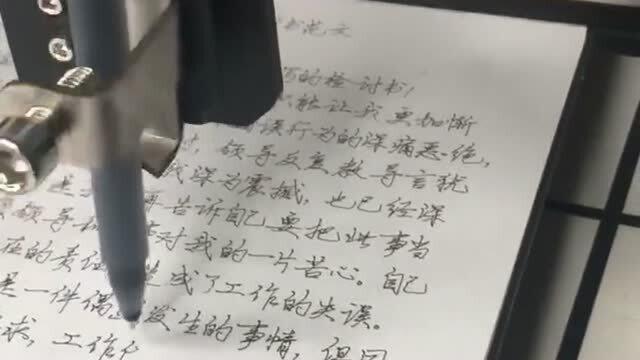 书范文
写的检讨书!
能让我更加惭
误行为的深痛恶绝,
领导反复教导言犹
我深为震撼,也已经深
再告诉自己要把此事当
领导 对我的一片苦心。自己
在的责任 造成了工作的失误。
是一件偶 发生的事情,但同
求,工作作